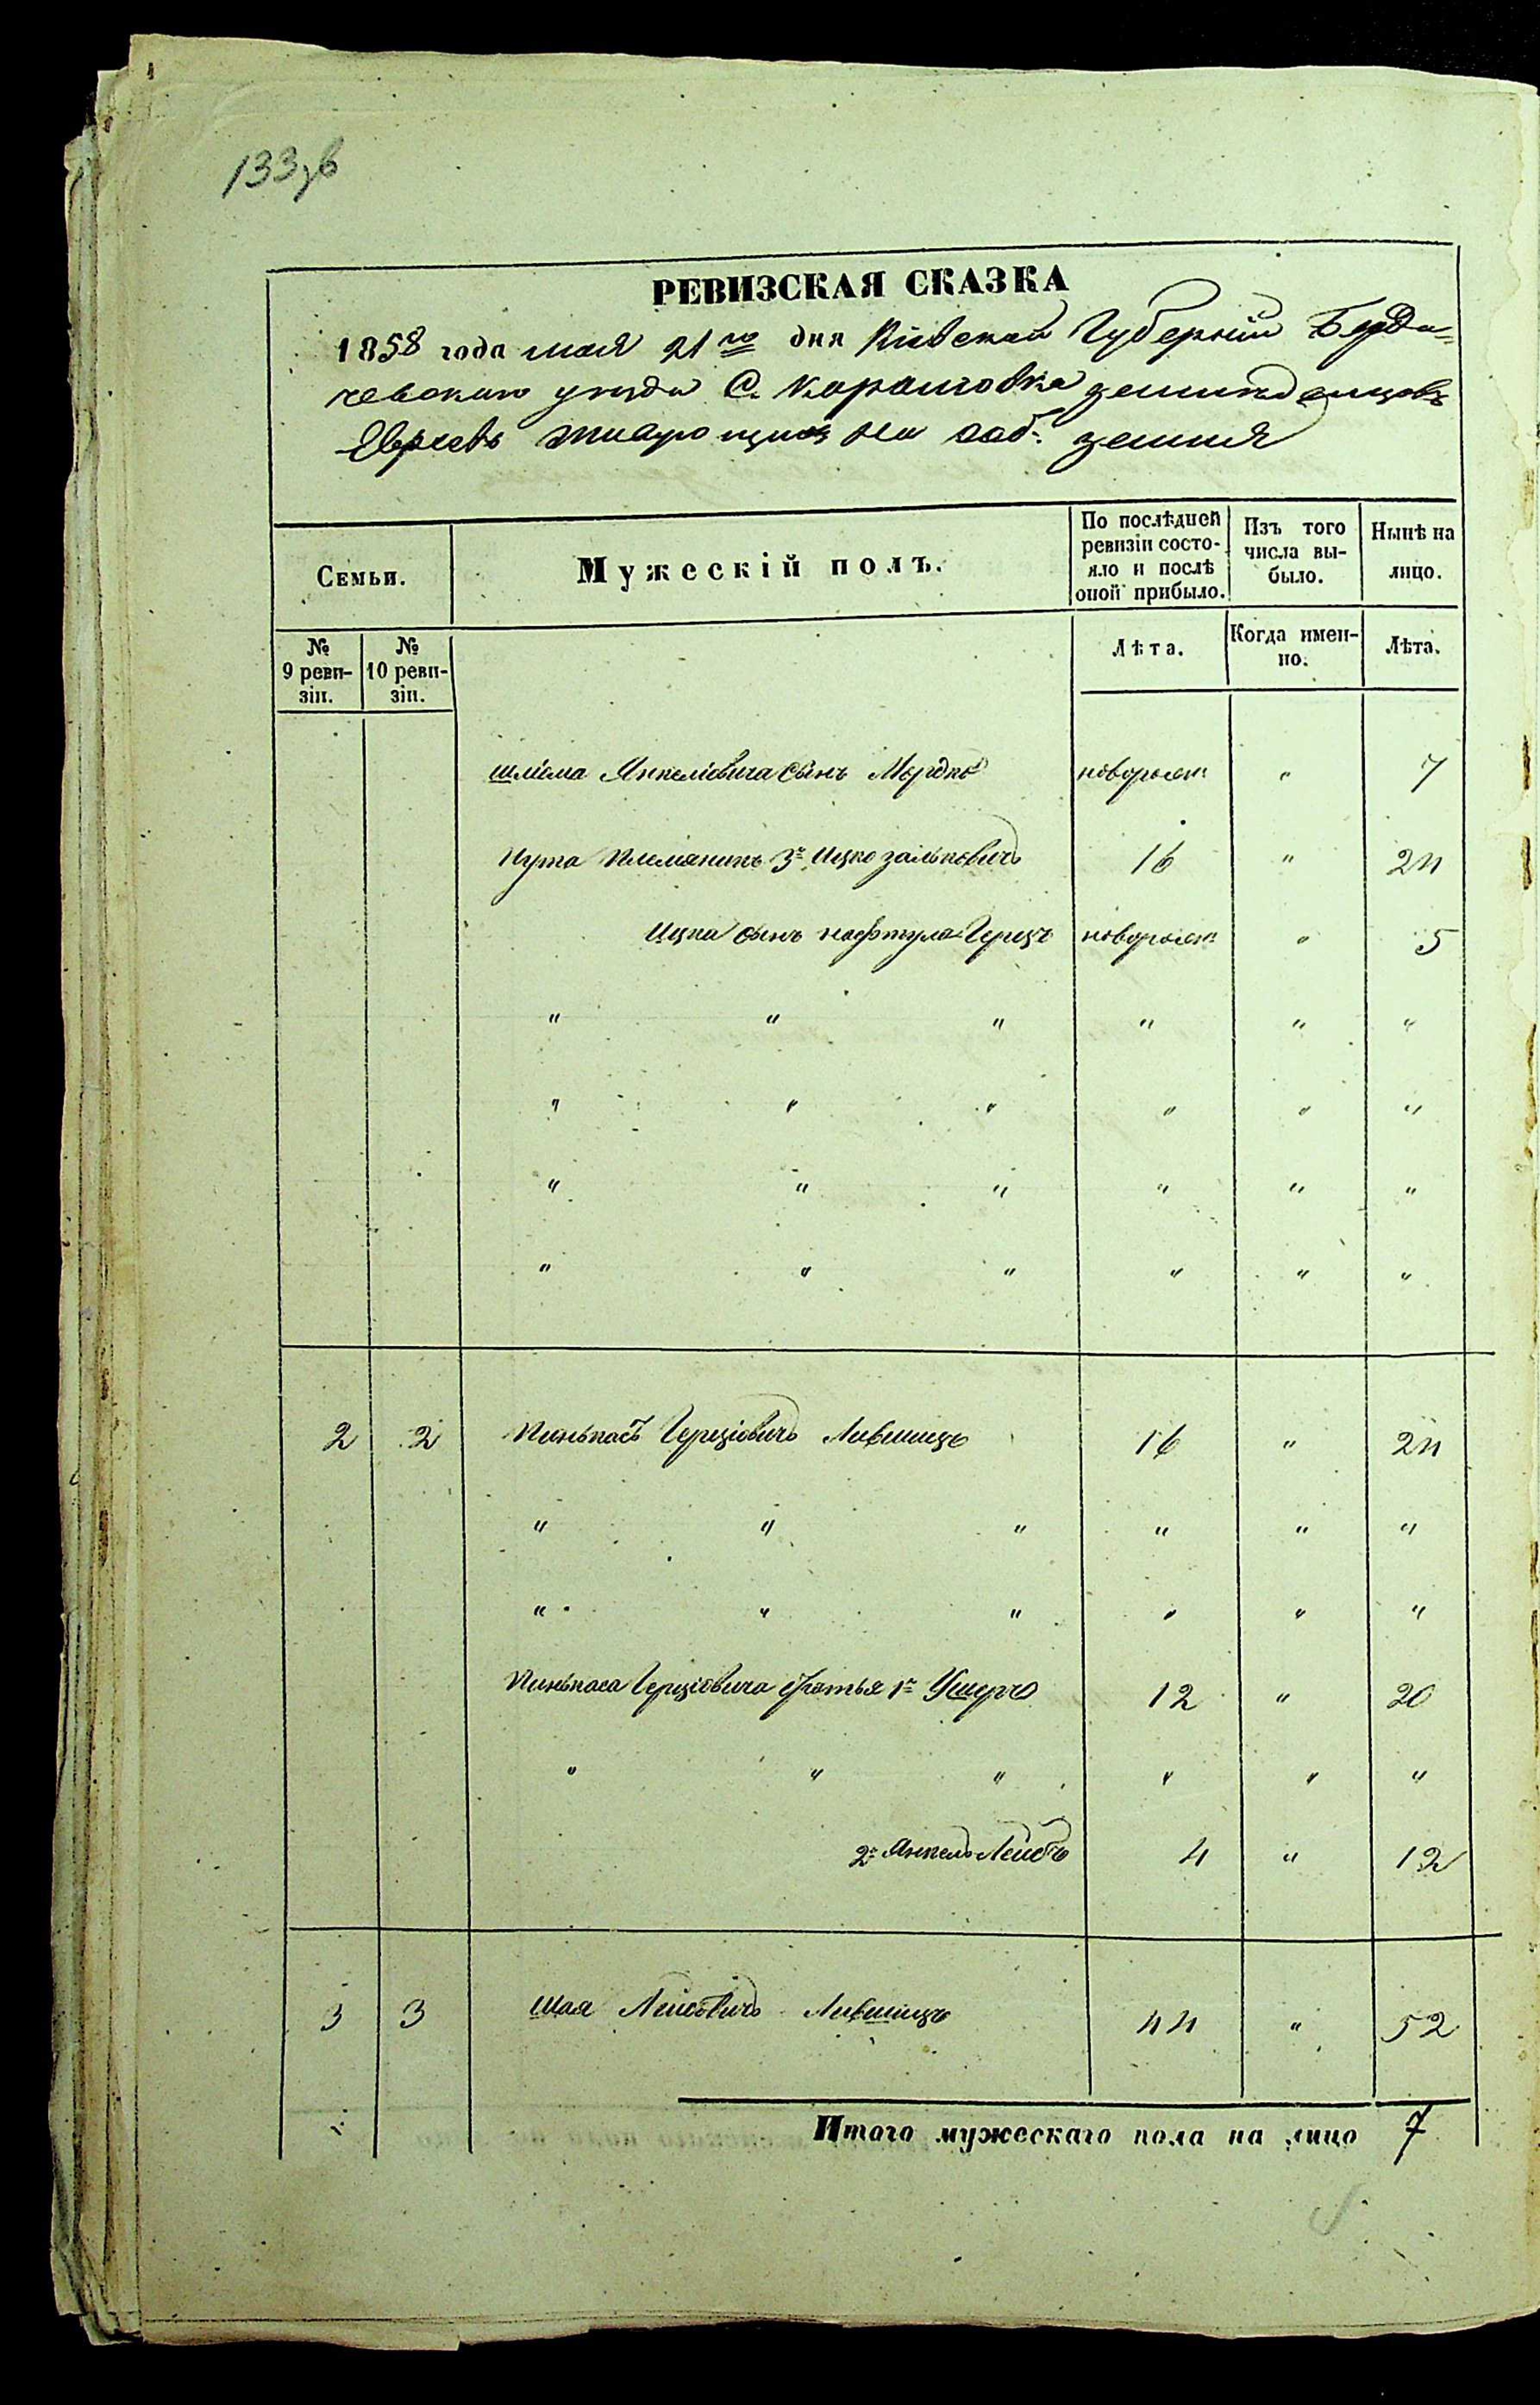 133зв
РЕВИЗСКАЯ СКАЗКА
1858 года мая 21го дня Кіевской Губерніи Берди-
чевскаго уезда С. Карашовка земледельцовъ
Евреевъ живущихъ на соб: земли
Семьи.
Мужескій полъ.
По послѣдней ревизіи состояло и послѣ оной прибыло.
Изъ того числа выбыло.
Нынѣ на лицо.
№ 9 ревизіи.
№ 10 ревизіи.
Лѣта.
Когда именно.
Лѣта.
Шліома Янкеліовича сынъ Мордко новорожн " 7
Нута племянникъ 3й Ицко Зальковичъ 16 " 24
Ицка сынъ Нафтула Герцъ новорожн " 5
" " " " " "
" " " " " "
" " " " " "
" " " " " "
2 2 Пинькасъ Герціовичъ Лившицъ 16 " 24
" " " " " "
" " " " " "
Пинькаса Герціовича братья 1й Ушеръ 12 " 20
" " " " " "
2й Янкель Лейбъ 4 " 12
3 3 Шая Лейбовичъ Лившицъ 44 " 52
Итого мужескаго пола на лицо 7